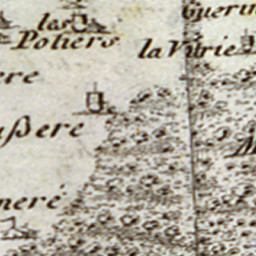 las
Poliers
Guerin
la Vitrie
ere
ußere
M
meré